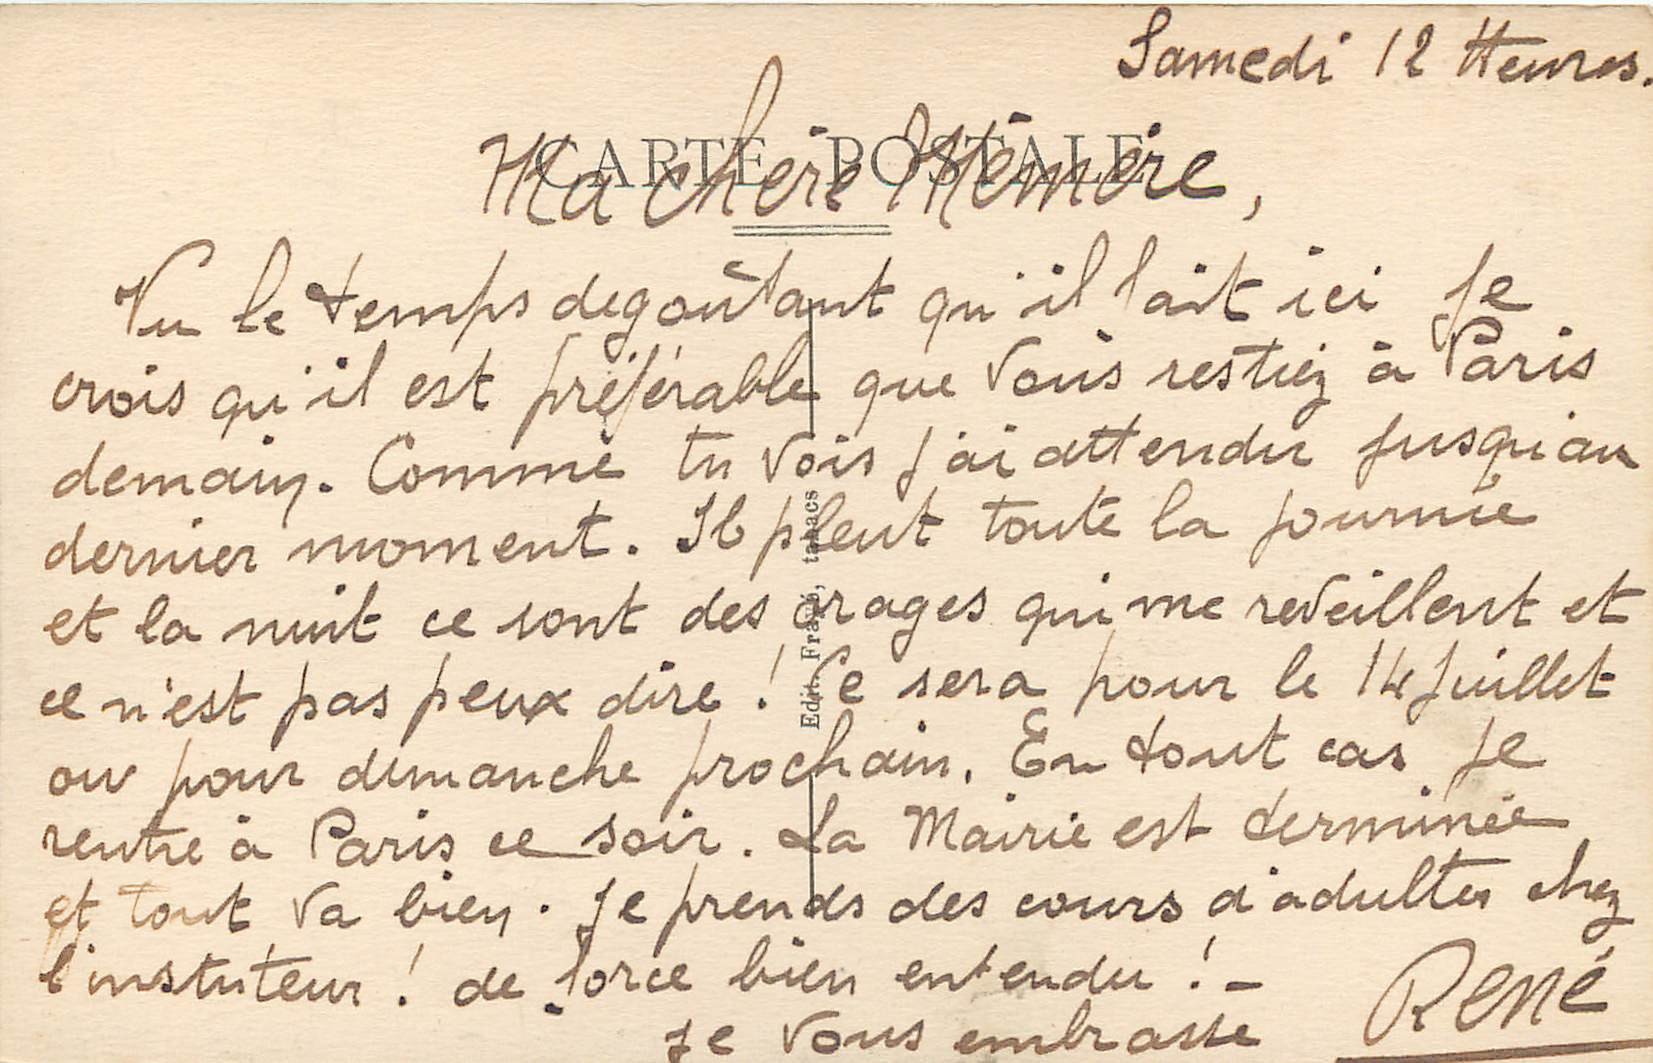 Samedi 12 Heures.
CARTE POSTALE
Ma chère Mémère,
Vu le temps degoûtant qu'il fait ici je
crois qu'il est préférable que vous restiez à Paris
demain. Comme tu vois j'ai attendu jusqu'au
dernier moment. Il pleut toute la journée
et la nuit ce sont des orages qui me reveillent et
ce n'est pas peux dire ! Ce sera pour le 14 Juillet
ou pour dimanche prochain. En tout cas je
rentre à Paris ce soir. La Mairie est terminée
et tout va bien. Je prends des cours d'adultes chez
l'instuteur ! de force bien entendu ! -
Je vous embrasse
René
Edit. tabacs